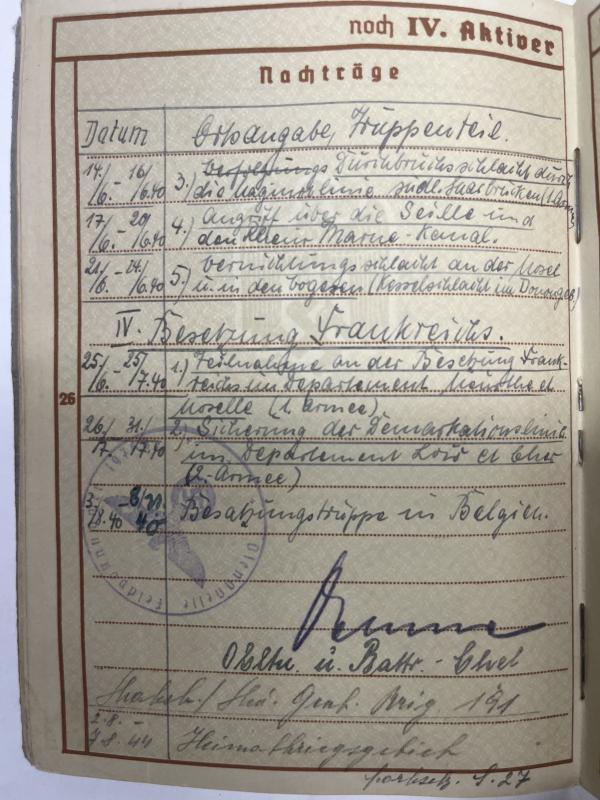 noch IV. Aktiver
Nachträge
Datum Ortsangabe, Truppenteil.
14./6. - 16./6.40 3.) Verfolgungs Durchbruchsschlacht durch
die Maginotlinie südl. Saarbrücken (1. Armee)
17/6. - 20/6.40 4.) Angriff über die Seille und
den Rhein Marne-Kanal.
21/6. - 24/6.40 5.) Vernichtungsschlacht an der Mosel
u. in den Vogesen (Kesselschlacht im Donongeb)
IV. Besetzung Frankreichs.
25/6. - 25/7.40 1.) Teilnahme an der Besetzung Frank-
reichs im Departement Meurthe et
Moselle (1. Armee)
26/7. 31./7.40 2.) Sicherung der Demarkationslinie
im Departement Loir et Cher
(2. Armee)
3./8.40 - 8/VI. 40 Besatzungstruppe in Belgien.
26
Dienststelle Feldpostnu
Obltn. u. Battr.-Chef
Brig 191
2.8. -
7.8.44 Heimatkriegsgebiet
S. 27